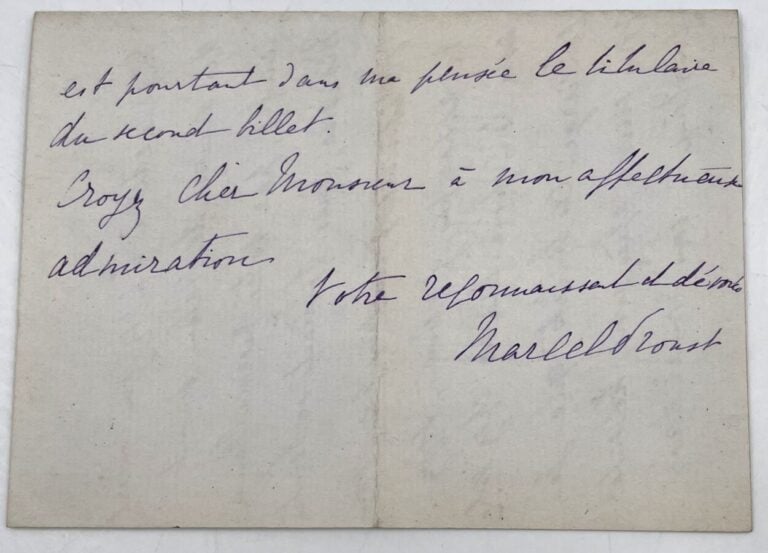 est pourtant dans ma pensée le titulaire
du second billet.
Croyez cher Monsieur à mon affectueuse
admiration
Votre reconnaissant et dévoué
Marcel Proust